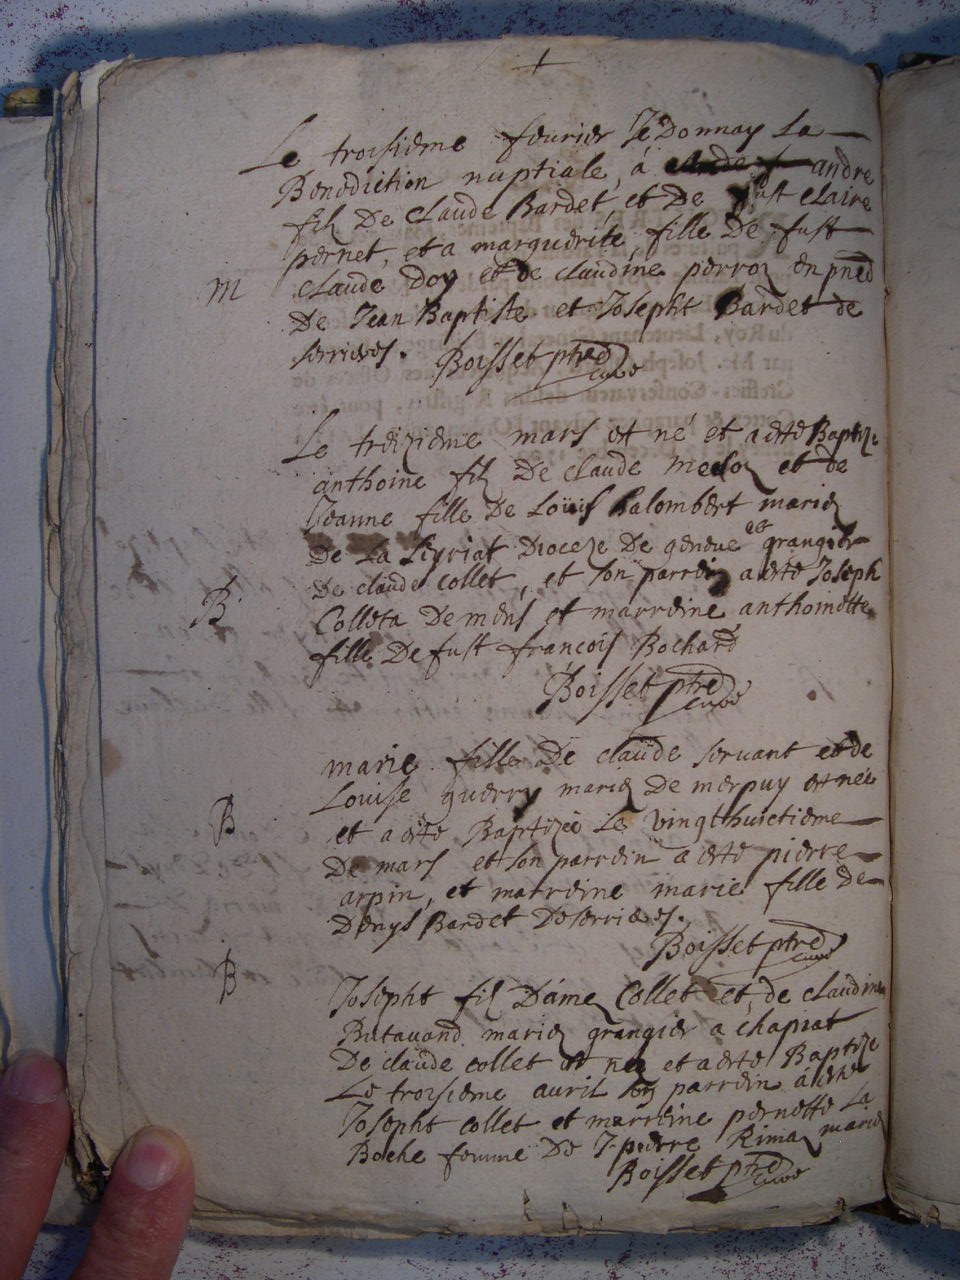 +
Le troisieme feburier Je Donnay La
Benediction nuptiale, á andre
filz De Claude Bardet et De Claire
pernet, et a marguerite fille De fust
M
Claude Doy et de claudine perroz en pned
De Jean Baptiste et Josepht Bardet de
serrieres. Boisset ptre
curé
Le treizieme mars et né et a esté Baptize
anthoine filz De claude et de
Jeanne fille De Loüis palombert mariez
De La Leyriat Dioceze De geneue et grangier
De claude collet, et son parrein a esté Joseph
B
Colleta De mens et marreine anthoinette
fille De fust francois Bochard
Boisset ptre
curé
marie fille De claude servant et de
Louise guerry mariez De merpuy et née
B
et a esté Baptizée Le vingthuictieme
De mars et son parrein a esté pierre
arpin, et marreine marie fille De
Denys Bardet De serrieres.
Boisset ptre
curé
B
Josepht filz Dáme Collet et de claudine
Butavand mariez grangier a chapiat
De claude collet et nez et a esté Baptize
Le troisieme auril son parrein á esté
Josepht collet et marreine pernette La
Boche femme De J-pierre Rimaz mariez
Boisset ptre
curé